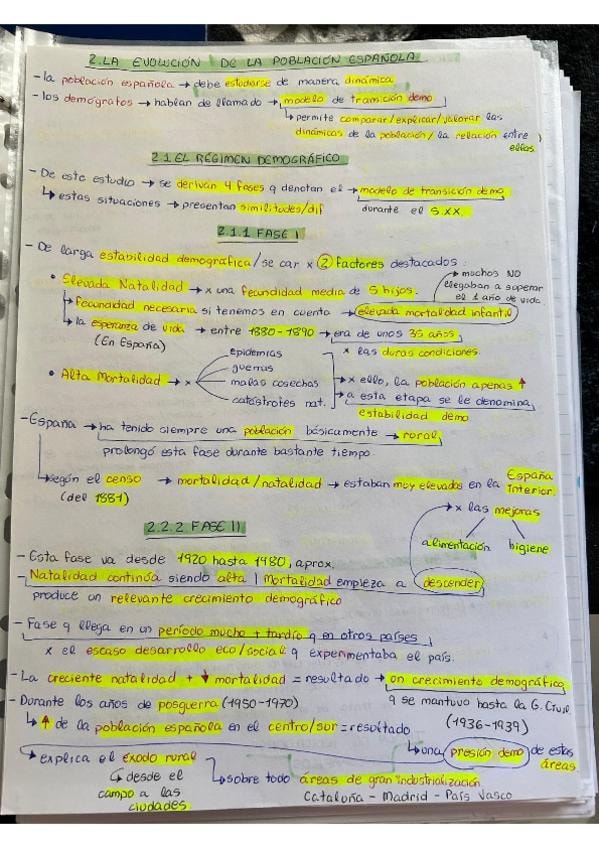 2. LA EVOLUCIÓN DE LA POBLACIÓN ESPAÑOLA
- la población española → debe estudiarse de manera dinámica
- los demógrafos → hablan de llamado → modelo de transición demo
↳ permite comparar/explicar/valorar las
dinámicas de la población/la relación entre
ellas
2.1 EL RÉGIMEN DEMOGRÁFICO
- De este estudio → se derivan 4 fases q denotan el → modelo de transición demo
↳ estas situaciones → presentan similitudes/dif
durante el S.XX.
2.1.1 FASE I
- De larga estabilidad demográfica/se car x ② factores destacados:
• Elevada Natalidad → x una fecundidad media de 5 hijos.
→ muchos NO
llegaban a superar
el 1 año de vida
→ fecundidad necesaria si tenemos en cuenta → elevada mortalidad infantil
→ la esperanza de vida → entre 1880-1890 → era de unos 35 años,
(En España)
x las duras condiciones.
• Alta Mortalidad → x
epidemias
guerras
malas cosechas
catástrofes nat.
→ x ello, la población apenas ↑
→ a esta etapa se le denomina,
estabilidad demo
- España → ha tenido siempre una población básicamente → rural
prolongó esta fase durante bastante tiempo
→ según el censo → mortalidad/natalidad → estaban muy elevados en la España
interior.
(del 1881)
2.2.2 FASE II
→ x las mejoras
alimentación higiene
- Esta fase va desde 1920 hasta 1980, aprox.
- Natalidad continúa siendo alta | Mortalidad empieza a descender,
produce un relevante crecimiento demográfico
- Fase q llega en un período mucho + tardío q en otros países,
x el escaso desarrollo eco/social q experimentaba el país.
- La creciente natalidad + ↓ mortalidad = resultado → un crecimiento demográfico,
q se mantuvo hasta la G. Civil
(1936-1939)
- Durante los años de posguerra (1950-1970)
↳ ↑ de la población española en el centro/sur = resultado
↳ una presión demo de estas
áreas
→ explica el éxodo rural
↳ desde el
campo a las
ciudades
→ sobre todo áreas de gran industrialización
Cataluña - Madrid - País Vasco